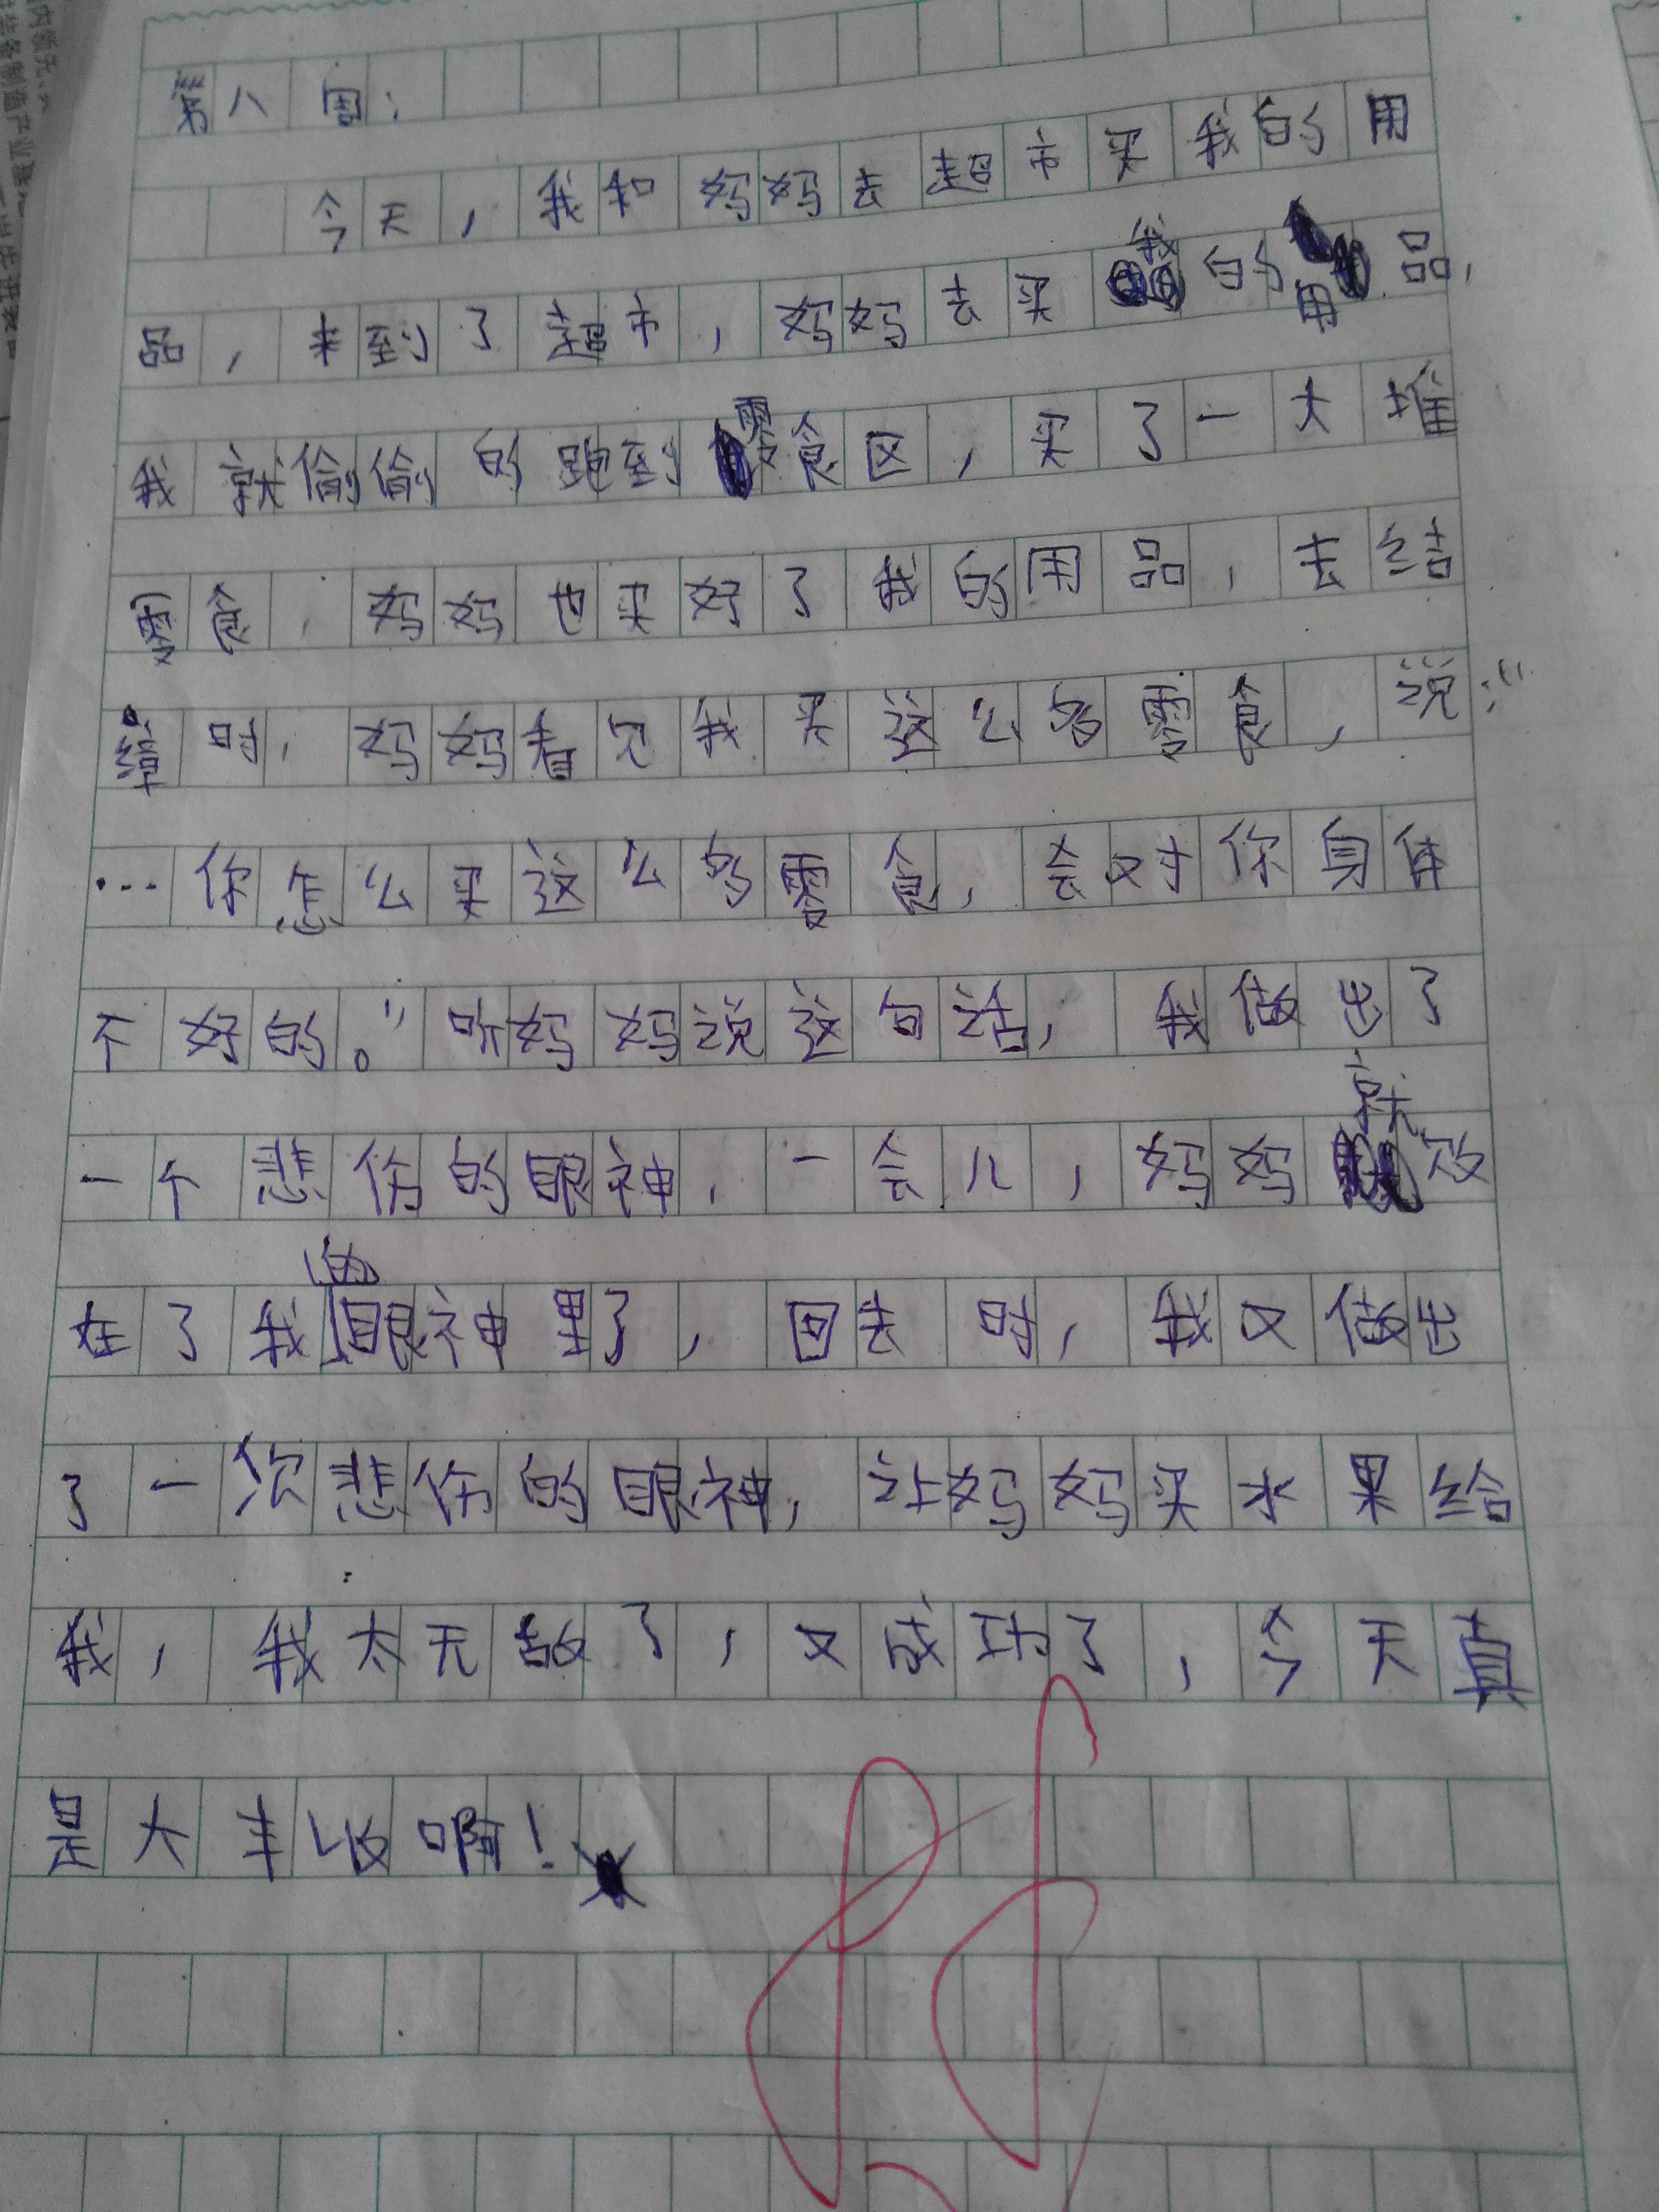 第八周：
今天，我和妈妈去超市买我的用
品，来到了超市，妈妈去买我的用品，
我就偷偷的跑到零食区，买了一大堆
零食，妈妈也买好了我的用品，去结
时，妈妈看见我买这么多零食，说：“
…你怎么买这么多零食，会对你身体
不好的。”听妈妈说这句话，我做出了
一个悲伤的眼神，一会儿，妈妈就败
在了我的眼神里了，回去时，我又做出
了一次悲伤的眼神，让妈妈买水果给
我，我太无敌了，又成功了，今天真
是大丰收啊！